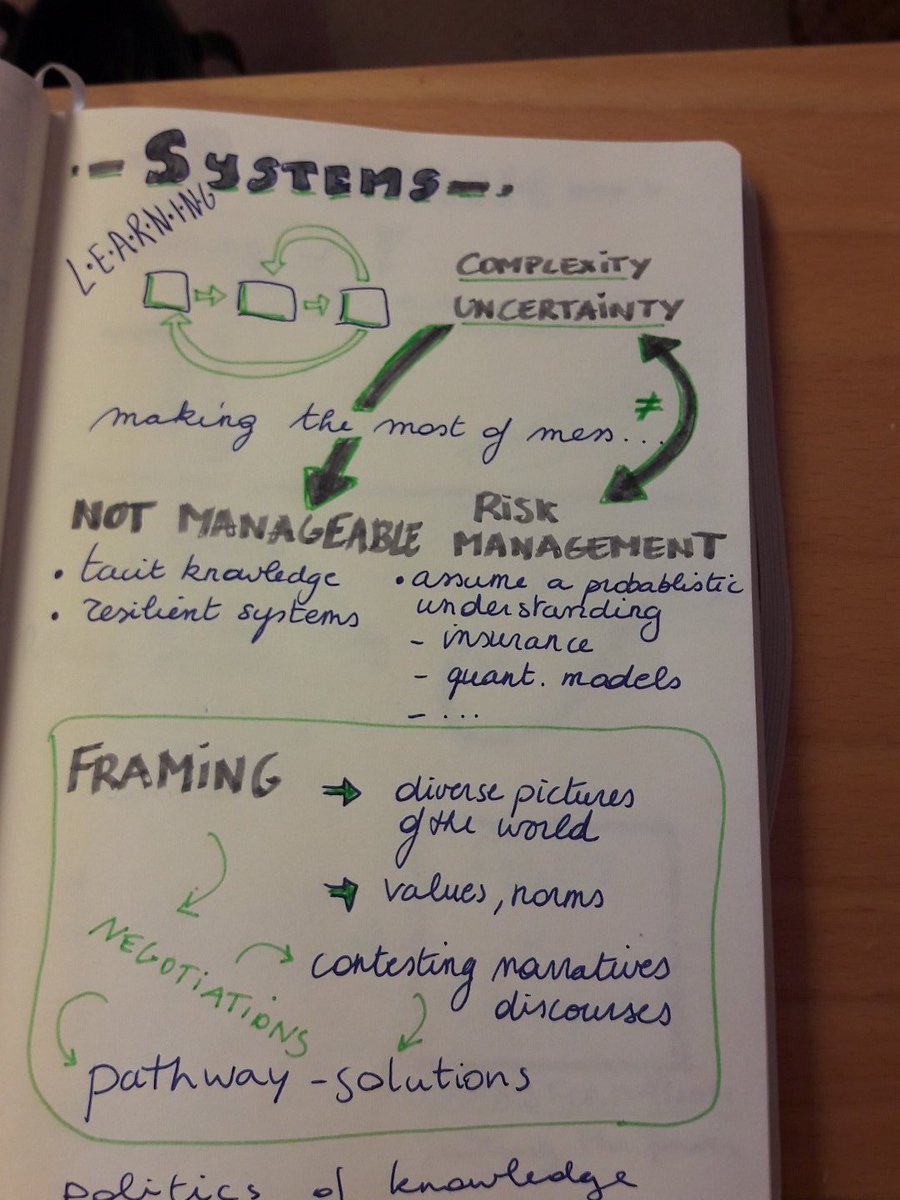 - SYSTEMS -
L.E.A.R.N.I.N.G
COMPLEXITY
UNCERTAINTY
≠
making the most of mess...
NOT MANAGEABLE
• tacit knowledge
• resilient systems
RISK
MANAGEMENT
• assume a probablistic
understanding
- insurance
- quant. models
- ...
FRAMING
⇒ diverse pictures
of the world
⇒ values, norms
NEGOTIATIONS
contesting narratives
discourses
pathway - solutions
politics of knowledge